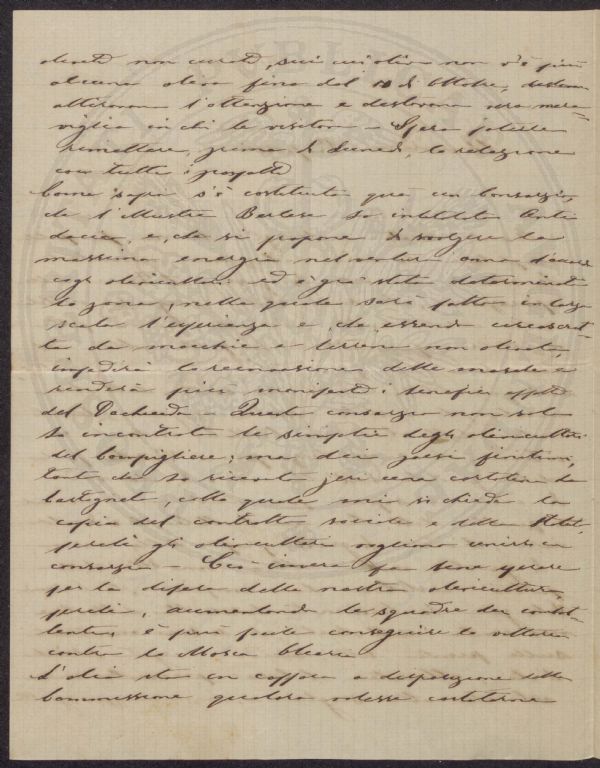 oliveti non curati, sui cui olivi non v'è più
alcuna oliva fino dal 10 di Ottobre, destano
attirarono l'attenzione e destarono la mera=
viglia in chi le visitava - Spero poterle
rimettere, prima di Lunedì, la relazione
con tutti i progetti
Come saprà s'è costituito qua un Consorzio,
che l'Illustre Berlese ha intitolato Anti
dacico, e che si propone di svolgere la
massima energia nel
cogli olivicultori ed è già stata determinata
la zona, nella quale sarà fatta in larga
scala l'esperienza e che, essendo circoscrit=
ta da macchie e terreni non olivati,
impedirà la reinvasione delle mosche e
renderà più manifesti i benefici effetti
del Dachicida - Questo consorzio non solo
ha incontrato le simpatie degli olivicultori
del Campigliese; ma dei paesi finitimi,
tanto che ho ricevuto jeri una cartolina da
Castagneto, colla quale mi si chiede la
copia del contratto sociale e dello Stat.
perché gli olivicultori vogliono unirsi in
consorzio - Ciò invero fa bene sperare
per la difesa della nostra olivicultura,
perché, aumentando le squadre dei combat=
tenti, è più facile conseguire la vittoria
contro la Mosca Olearia
L'olio sta in a disposizione della
Commissione qualora volesse